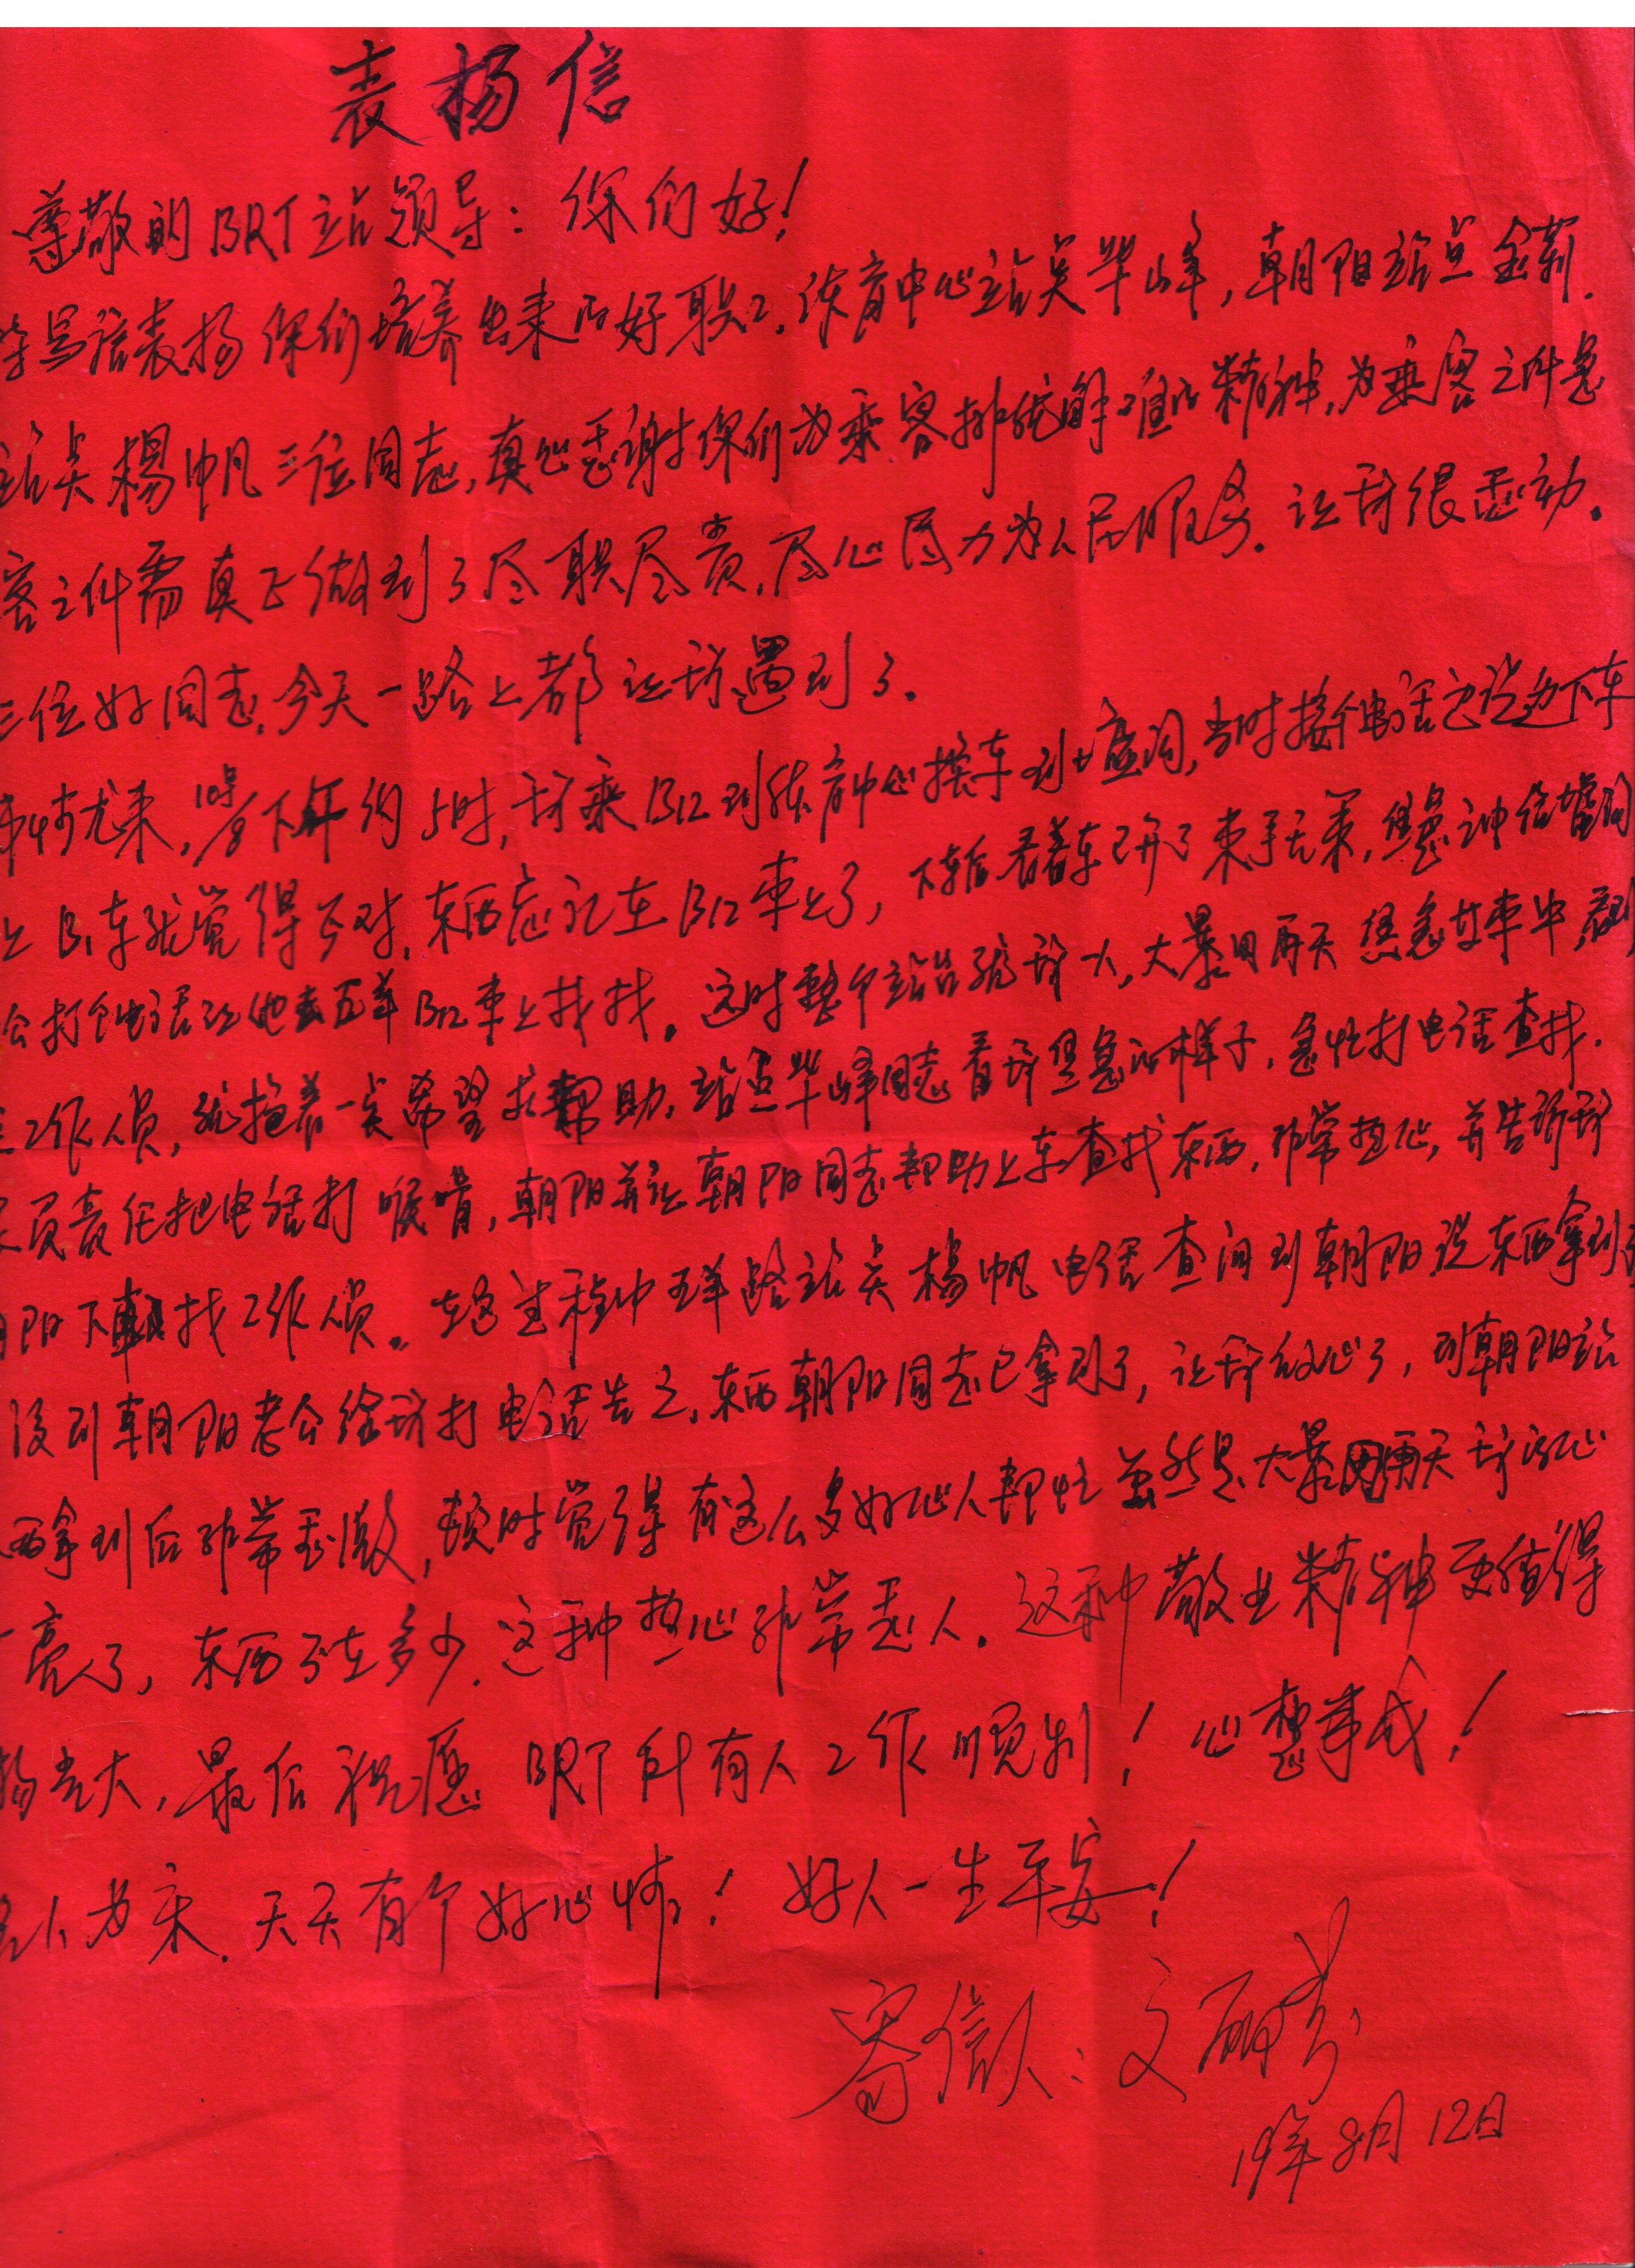 表扬信
尊敬的BRT站领导：你们好！
写信表扬你们培养出来的好职工，体育中心站点毕峰，朝阳站点金莉，
站点杨帆三位同志，真心感谢你们为乘客排忧解难的精神，为乘客之所急
客之所需真正做到了尽职尽责，尽心尽力为人民服务。让我很感动。
三位好同志，今天一路上都让我遇到了。
事情尤来，10号下午约5时，我乘B12到体育中心换车到 当时接个电话边说边下车
上B1车就觉得不对，东西忘记在B12车上了，下车后看着车已开了束手无策，
公打个电话让他去五羊B12车上找找。这时整个站台就我一人，大暴雨天
工作人员，就抱着一点希望求帮助，站点毕峰同志看我焦急的样子，急忙打电话查找，
负责任把电话打 朝阳并让朝阳同志帮助上车查找东西，非常热心，并告诉我
阳下车找工作人员。在这过程中五羊路站点杨帆电话查问到朝阳，说东西拿到了
没到朝阳老公给我打电话告之，东西朝阳同志已拿到了，让我放心了，到朝阳站
西拿到后非常感激，顿时觉得有这么多好心人帮忙虽然是大暴雨天我的心
亮了，东西不在多少，这种热心非常感人。这种敬业精神更值得
扬光大，最后祝愿BRT所有人工作顺利！心想事成！
为乐，天天有个好心情！好人一生平安！
寄信人：文丽
19年8月12日